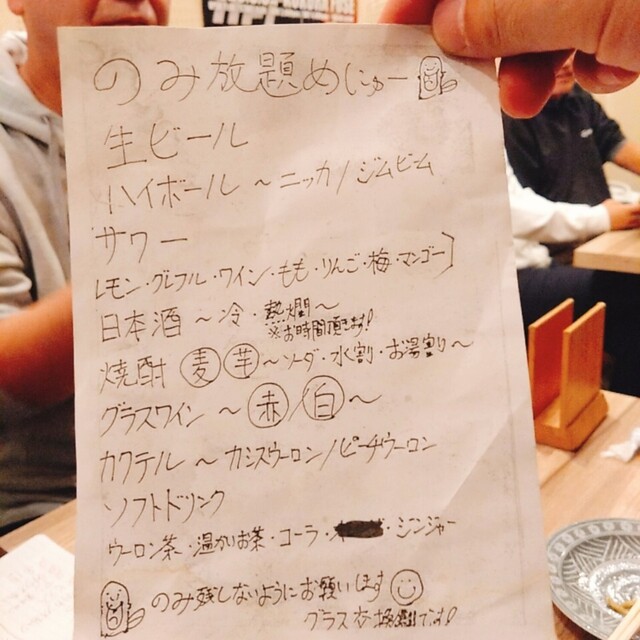 のみ放題めにゅー
生ビール
ハイボール ～ニッカ/ジムビーム
サワー
レモン・グレフル・ワイン・もも・りんご・梅・マンゴー
日本酒 ～冷・熱燗～
※お時間頂きます!
焼酎 麦 芋～ソーダ・水割・お湯割り～
グラスワイン ～赤/白～
カクテル ～カシスウーロン/ピーチウーロン
ソフトドリンク
ウーロン茶・温かいお茶・コーラ・ジンジャー
のみ残しないようにお願いします
グラス交換制です!